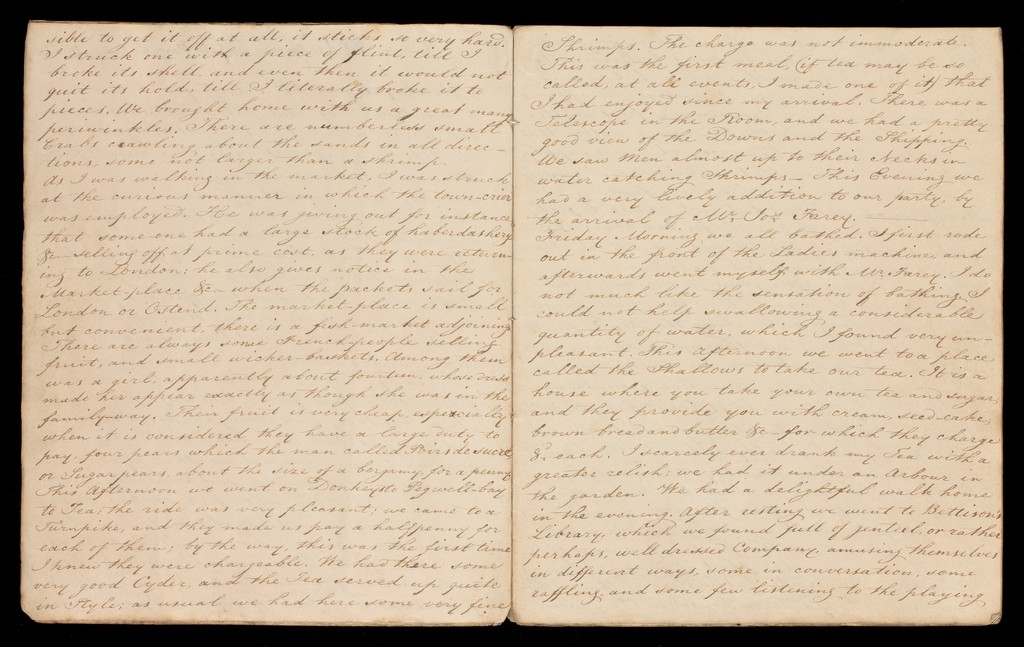 sible to get it off at all, it sticks so very hard.
I struck one with a piece of flint, till I
broke its shell, and even then it would not
quit its hold, till I literally broke it to
pieces. We brought home with us a great many
periwinkles. There are numberless small
Crabs crawling about the sands in all direc-
tions, some not larger than a shrimp.
As I was walking in the market, I was struck
at the curious manner in which the town-crier
was employed. He was giving out for instance
that some one had a large stock of haberdashery
&c- selling off at prime cost, as they were return-
ing to London; he also gives notice in the
Market-place &c- when the packets sail for
London or Ostend. The market-place is small
but convenient, there is a fish-market adjoining
There are always some French people selling
fruit, and small wicker-baskets. Among them
was a girl, apparently about fourteen, whose dress
made her appear exactly as though she was in the
family-way. Their fruit is very cheap especially
when it is considered they have a large duty to
pay. four pears which the man called Poirs de sucre
or Sugar pears, about the size of a bergamy, for a penny
This Afternoon we went on Donkeys to Pegwell-bay
to Tea, the ride was very pleasant; we came to a
Turnpike, and they made us pay a halfpenny for
each of them; by the way, this was the first time
I knew they were chargeable. We had there some
very good Cyder, and the Tea served up quite
in Style; as usual we had here some very fine
Shrimps. The charge was not immoderate.
This was the first meal (if tea may be so
called, at all events, I made one of it) that
I had enjoyed since my arrival. There was a
Telescope in the Room, and we had a pretty
good view of the Downs and the Shipping.
We saw Men almost up to their Necks in
water catching Shrimps- This Evening we
had a very lively addition to our party, by
the arrival of Mr. Jos. Farey.
Friday Morning we all bathed. I first rode
out in the front of the Ladies machine, and
afterwards went myself with Mr Farey. I do
not much like the sensation of bathing. I
could not help swallowing a considerable
quantity of water, which I found very un-
pleasant. This Afternoon we went to a place
called the Shallows to take our tea. It is a
house where you take your own tea and sugar,
and they provide you with cream, seed-cake,
brown bread and butter &c- for which they charge
each. I scarcely ever drank my Tea with a
greater relish; we had it under an Arbour in
the garden. We had a delightful walk home
in the evening. After resting we went to Bettison's
Library, which we found full of genteel, or rather
perhaps, well dressed Company, amusing themselves
in different ways, some in conversation, some
raffling, and some few listening to the playing